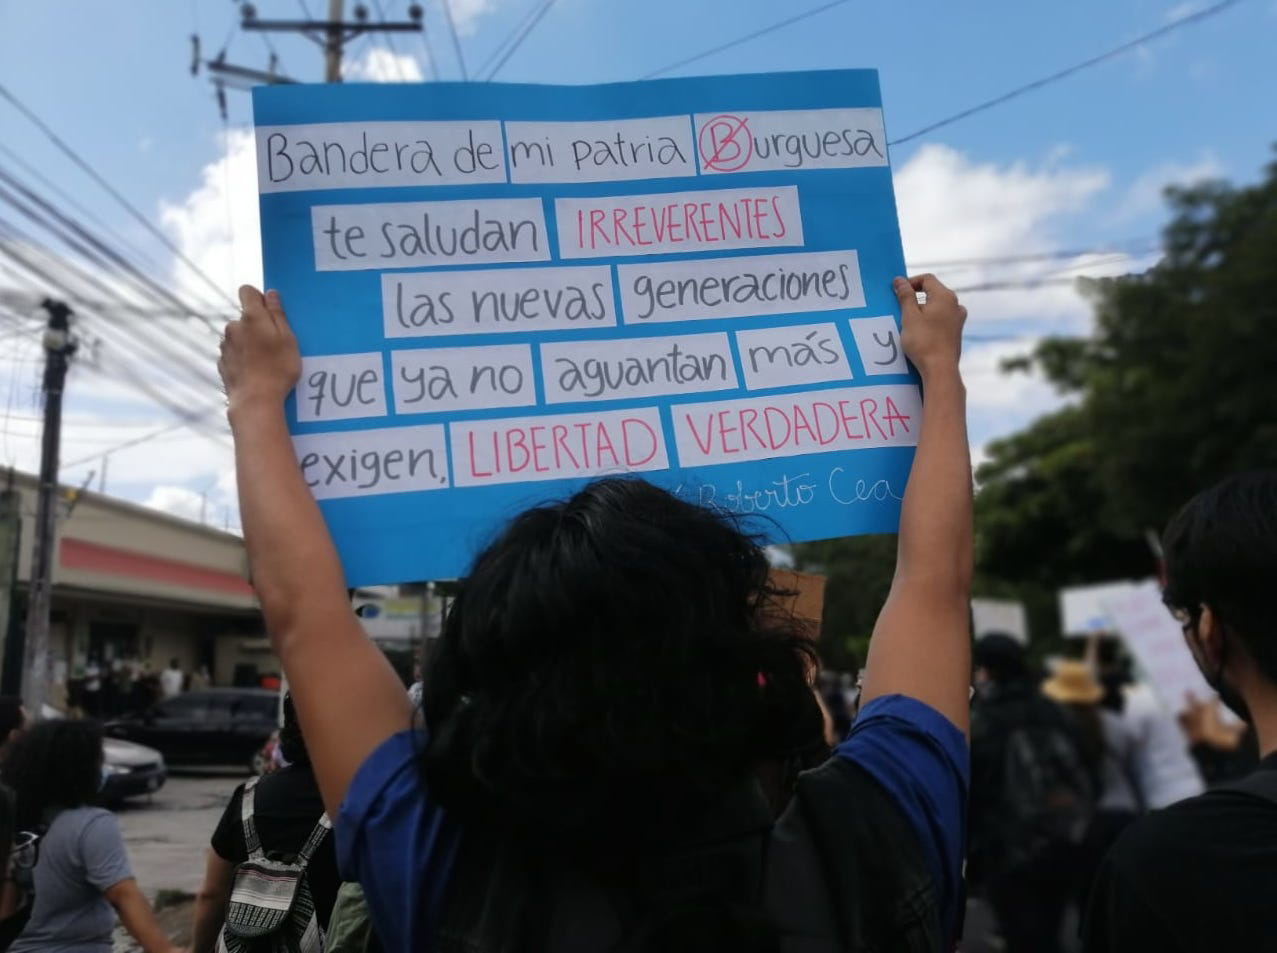 Bandera de mi patria Burguesa
te saludan IRREVERENTES
las nuevas generaciones
que ya no aguantan más y
exigen, LIBERTAD VERDADERA
Roberto Cea